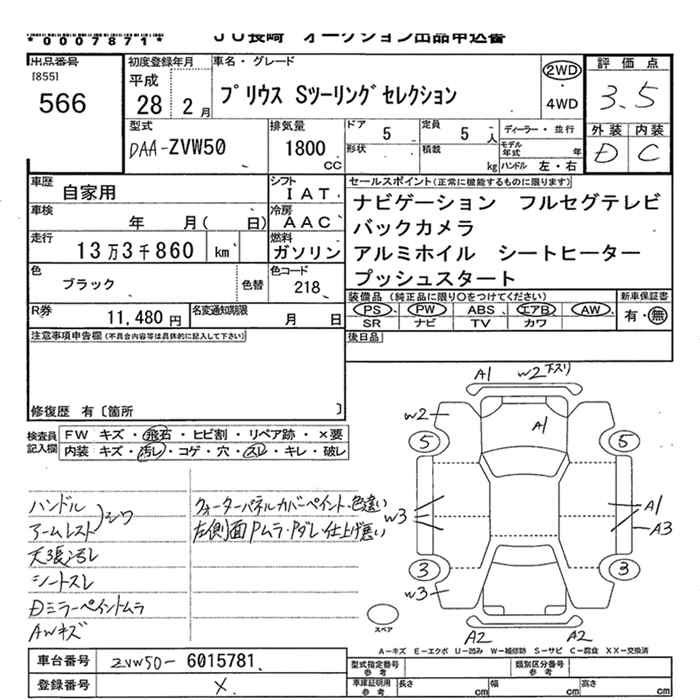 *0007871*
JU長崎 オークション出品申込書
出品番号
[855]
566
初度登録年月
平成
28 2月
車名・グレード
プリウス Sツーリングセレクション
2WD
4WD
評価点
3.5
外装 内装
D C
型式
DAA-ZVW50
排気量
1800
CC
ドア 5
定員 5 人
形状
積載 kg
ディーラー・並行
モデル年式 年
ハンドル 左・右
車歴
自家用
シフト
IAT
車検
年 月( 日)
冷房
AAC
走行
13万3千860 km
燃料
ガソリン
色
ブラック
色替
色コード
218
R券
11,480円
名変通知期限
月 日
セールスポイント(正常に機能するものに限ります)
ナビゲーション フルセグテレビ
バックカメラ
アルミホイル シートヒーター
プッシュスタート
装備品(純正品に限り○をつけてください)
新車保証書
PS PW ABS エアB AW
SR ナビ TV カワ
有・無
後日品
注意事項申告欄(不具合内容等は具体的に記入して下さい)
修復歴 有〔箇所 〕
検査員
記入欄
FW キズ・飛石・ヒビ割・リペア跡・×要
内装 キズ・汚レ・コゲ・穴・スレ・キレ・破レ
ハンドル
アームレスト
シワ
天張汚レ
シートスレ
Dミラーペイントムラ
AWキズ
クォーターパネルカバーペイント・色違い
左側面Pムラ・Pダレ・仕上げ悪い
A1 W2 下スリ
A1
W2
A1
5 5
W3
A1
A3
3 3
W3
スペア
A2 A2
A-キズ E-エクボ U-凹み W-補修跡 S-サビ C-腐食 XX-交換済
車台番号
ZVW50-6015781
登録番号
X
型式指定番号
参考
類別区分番号
参考
車庫証明用
参考
長さ cm
幅 cm
高さ cm